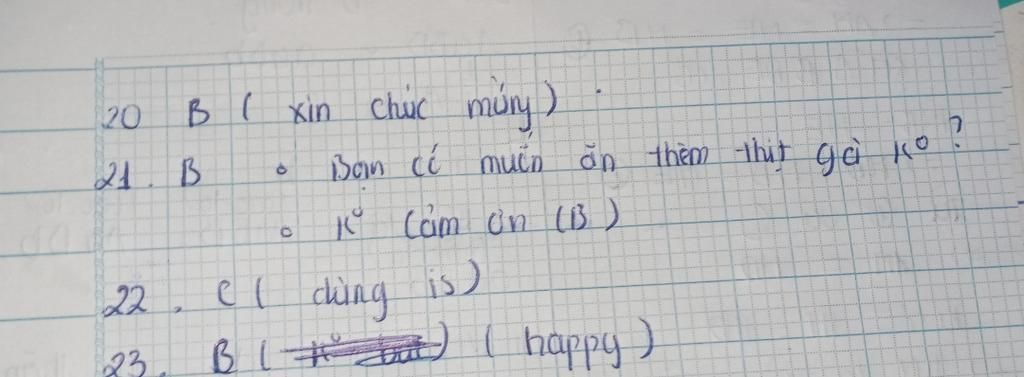 20 B ( xin chúc mừng) .
21. B o Bạn có muốn ăn thêm thịt gà ko ?
o Ko cảm ơn (B)
22. C ( dùng is)
23. B ( ) ( happy )